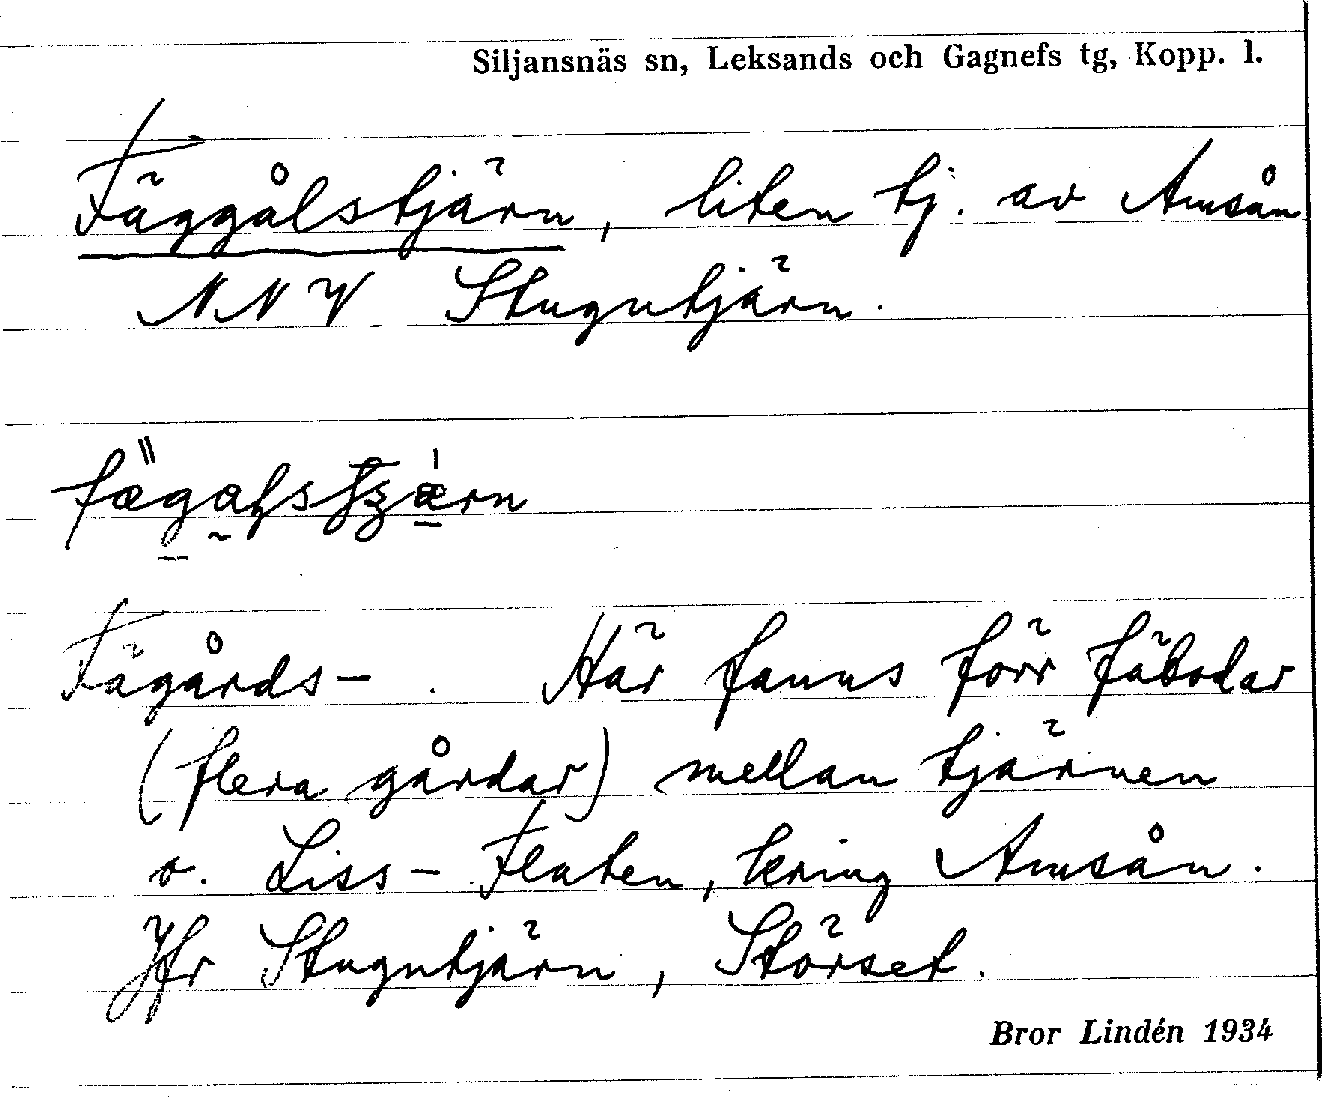 Siljansnäs sn, Leksands och Gagnefs tg, Kopp. l.
Fäggålstjärn, liten tj. av Amsån
NNV Stugutjärn.
Fägårds-. Här fanns förr fäbodar
(flera gårdar) mellan tjärnen
o. Liss-Flaten, kring Amsån.
Jfr Stugutjärn, Störset.
Bror Lindén 1934